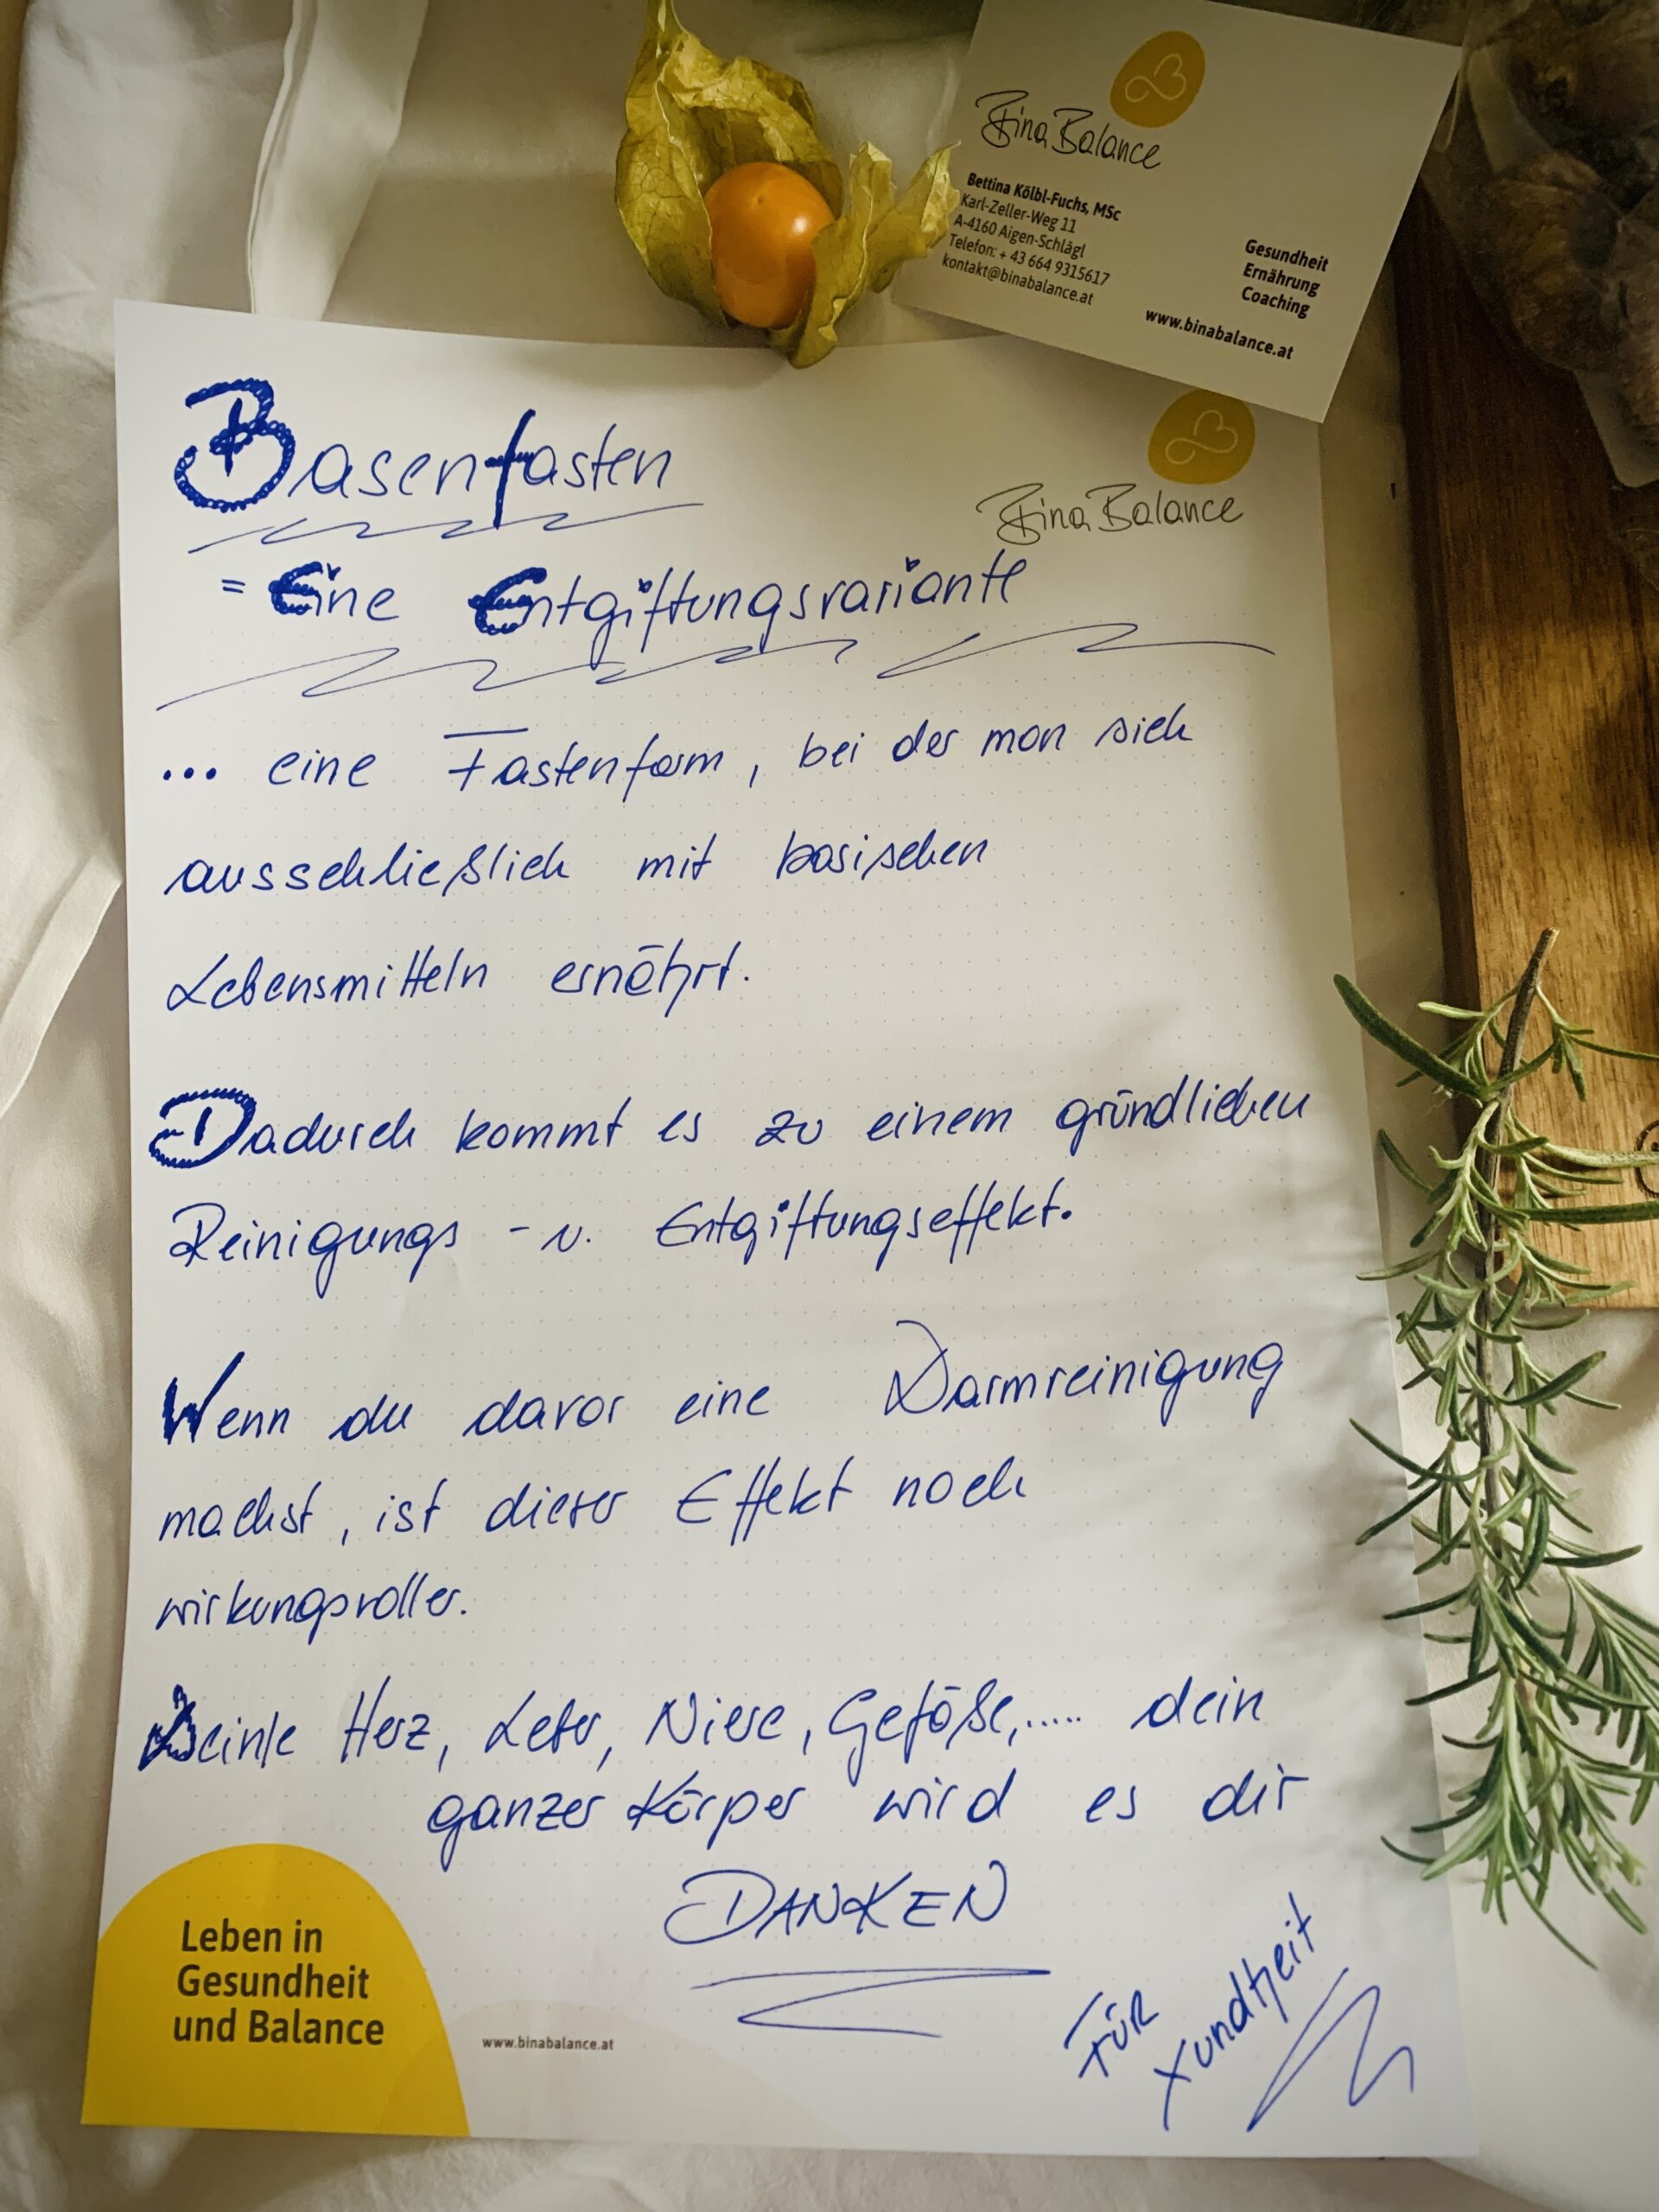 Bina Balance
Bettina Kölbl-Fuchs, MSc
Karl-Zeller-Weg 11
A-4160 Aigen-Schlägl
Telefon: + 43 664 9315617
kontakt@binabalance.at
Gesundheit
Ernährung
Coaching
www.binabalance.at
Bina Balance
Basenfasten
= Eine Entgiftungsvariante
... eine Fastenform, bei der man sich
ausschließlich mit basischen
Lebensmitteln ernährt.
Dadurch kommt es zu einem gründlichen
Reinigungs - u. Entgiftungseffekt.
Wenn du davor eine Darmreinigung
machst, ist dieser Effekt noch
wirkungsvoller.
Dein/e Herz, Leber, Niere, Gefäße,..... dein
ganzer Körper wird es dir
DANKEN
FÜR
Xundheit
Leben in
Gesundheit
und Balance
www.binabalance.at